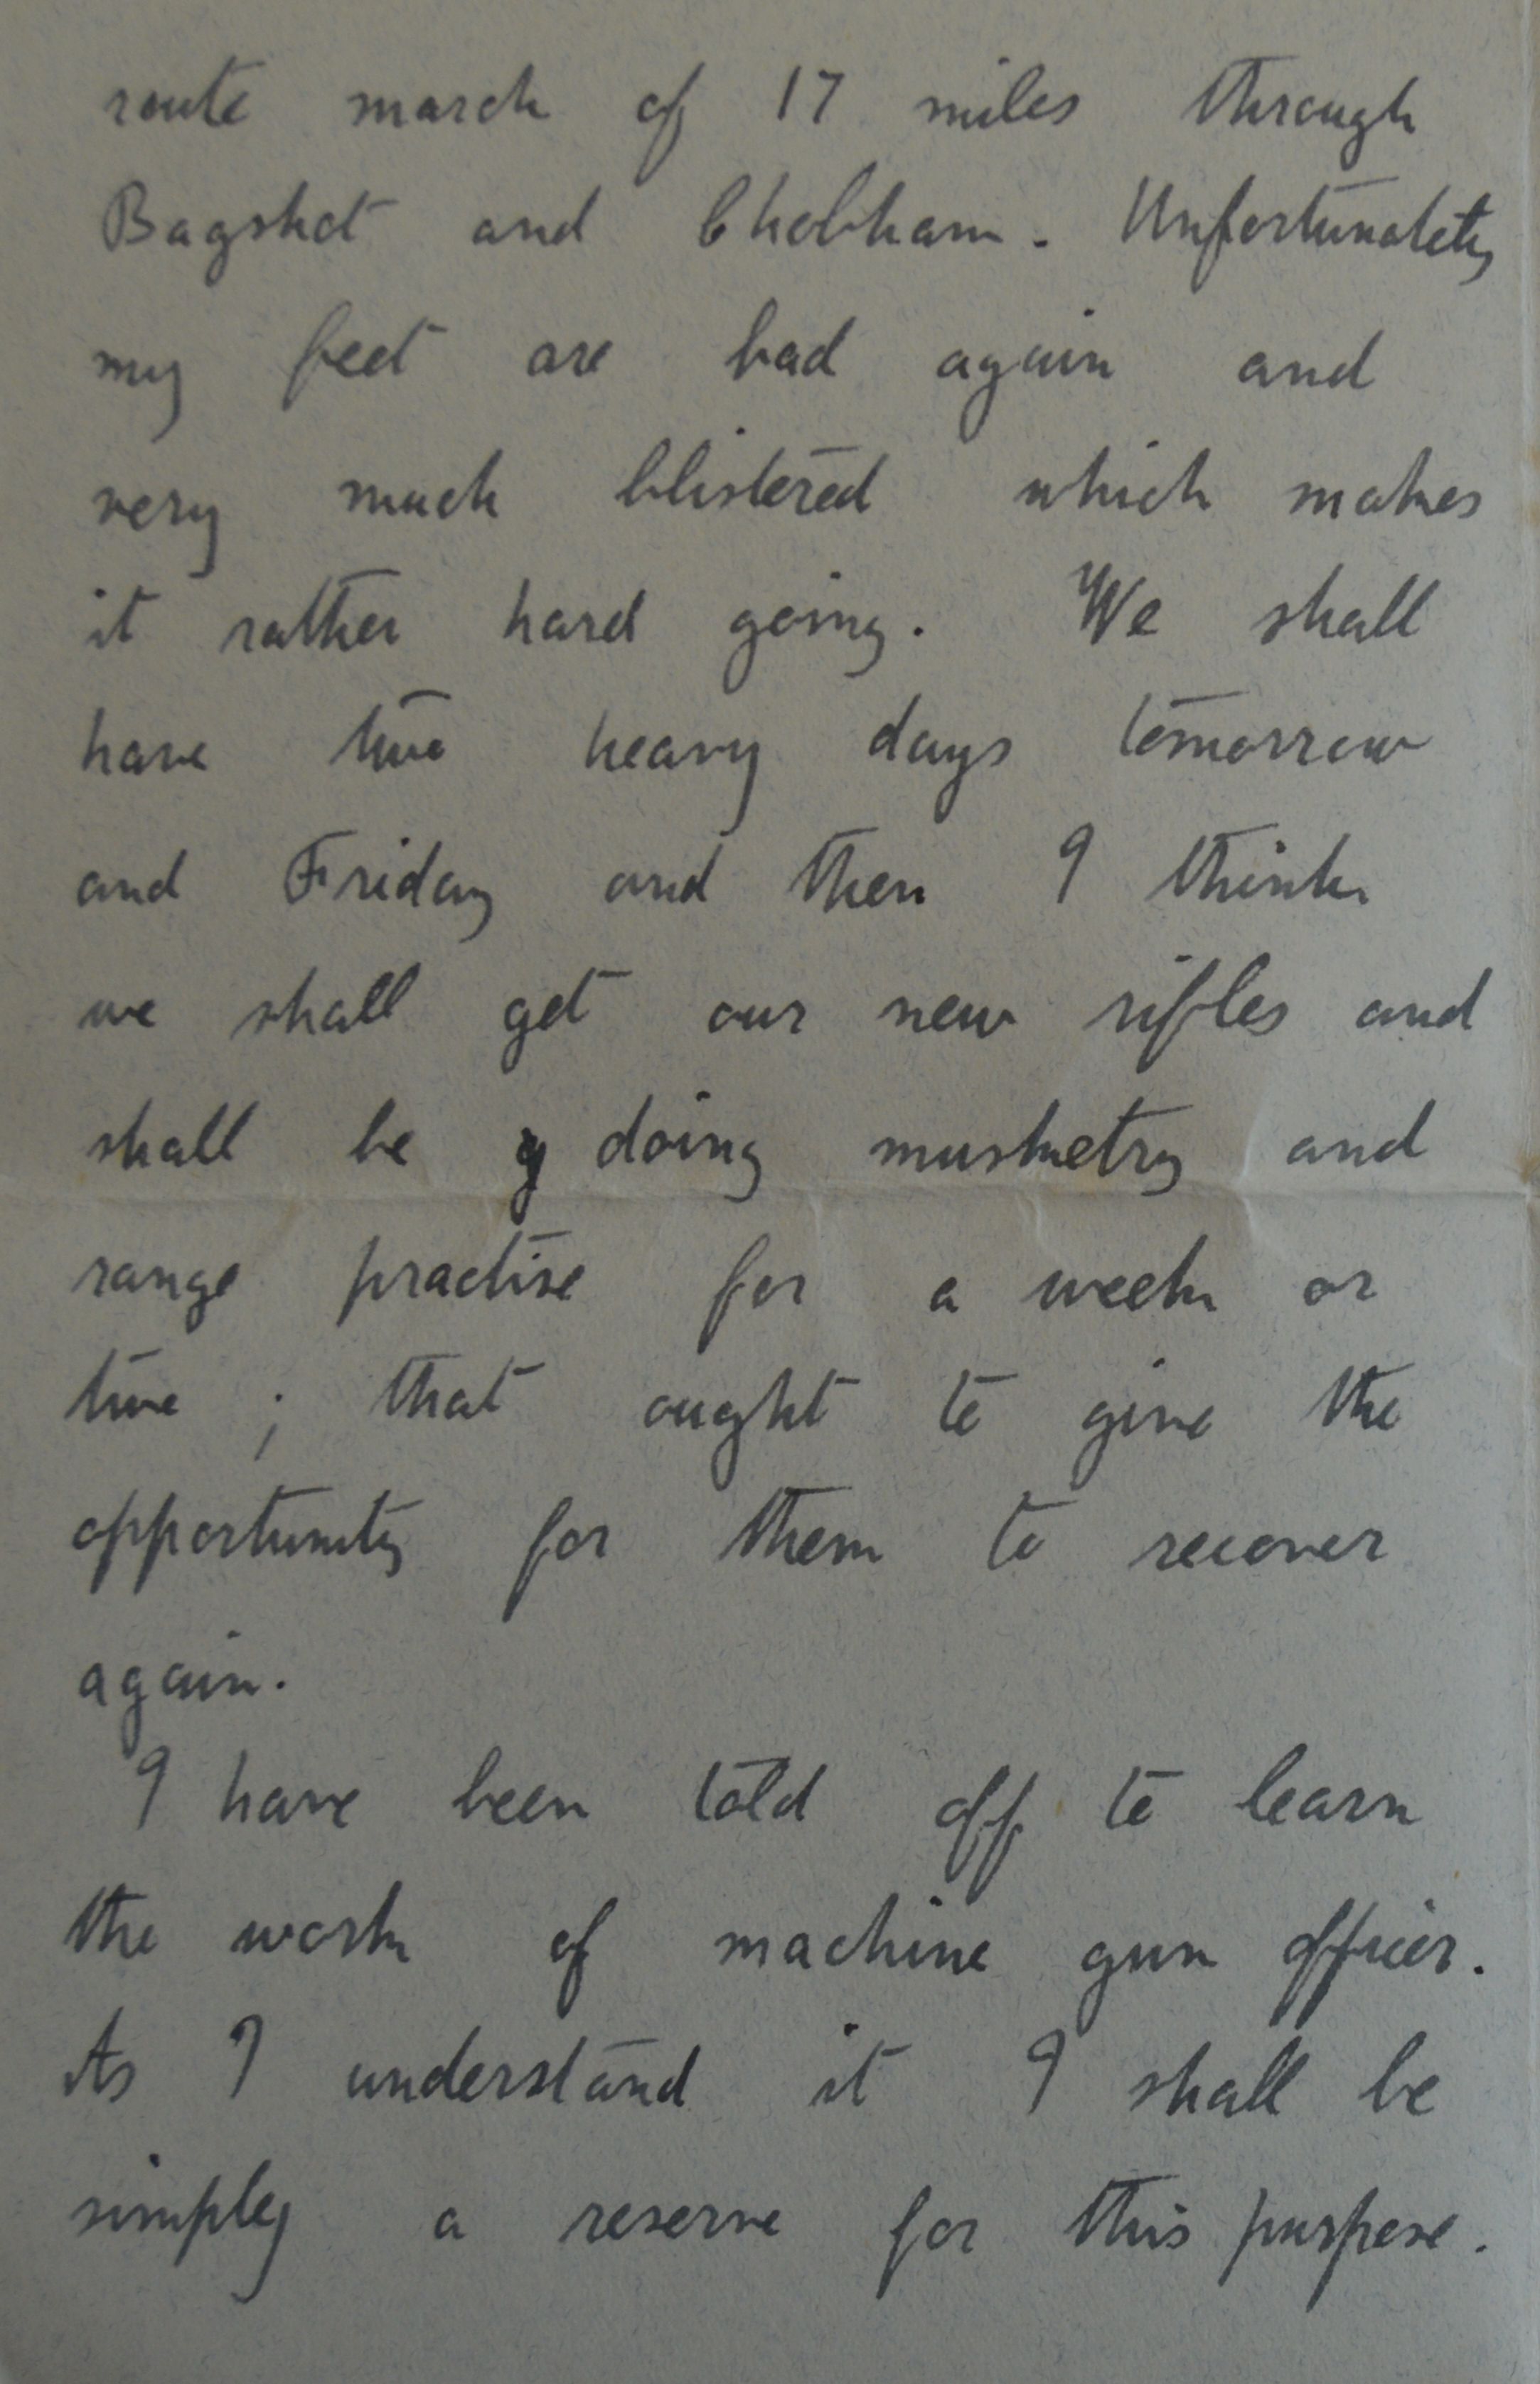 route march of 17 miles through
Bagshot and Chobham. Unfortunately
my feet are bad again and
very much blistered which makes
it rather hard going. We shall
have two heavy days tomorrow
and Friday and then I think
we shall get our new rifles and
shall be doing musketry and
range practise for a week or
two ; that ought to give the
opportunity for them to recover
again.
I have been told off to learn
the work of machine gun officer.
As I understand it I shall be
simply a reserve for this purpose.